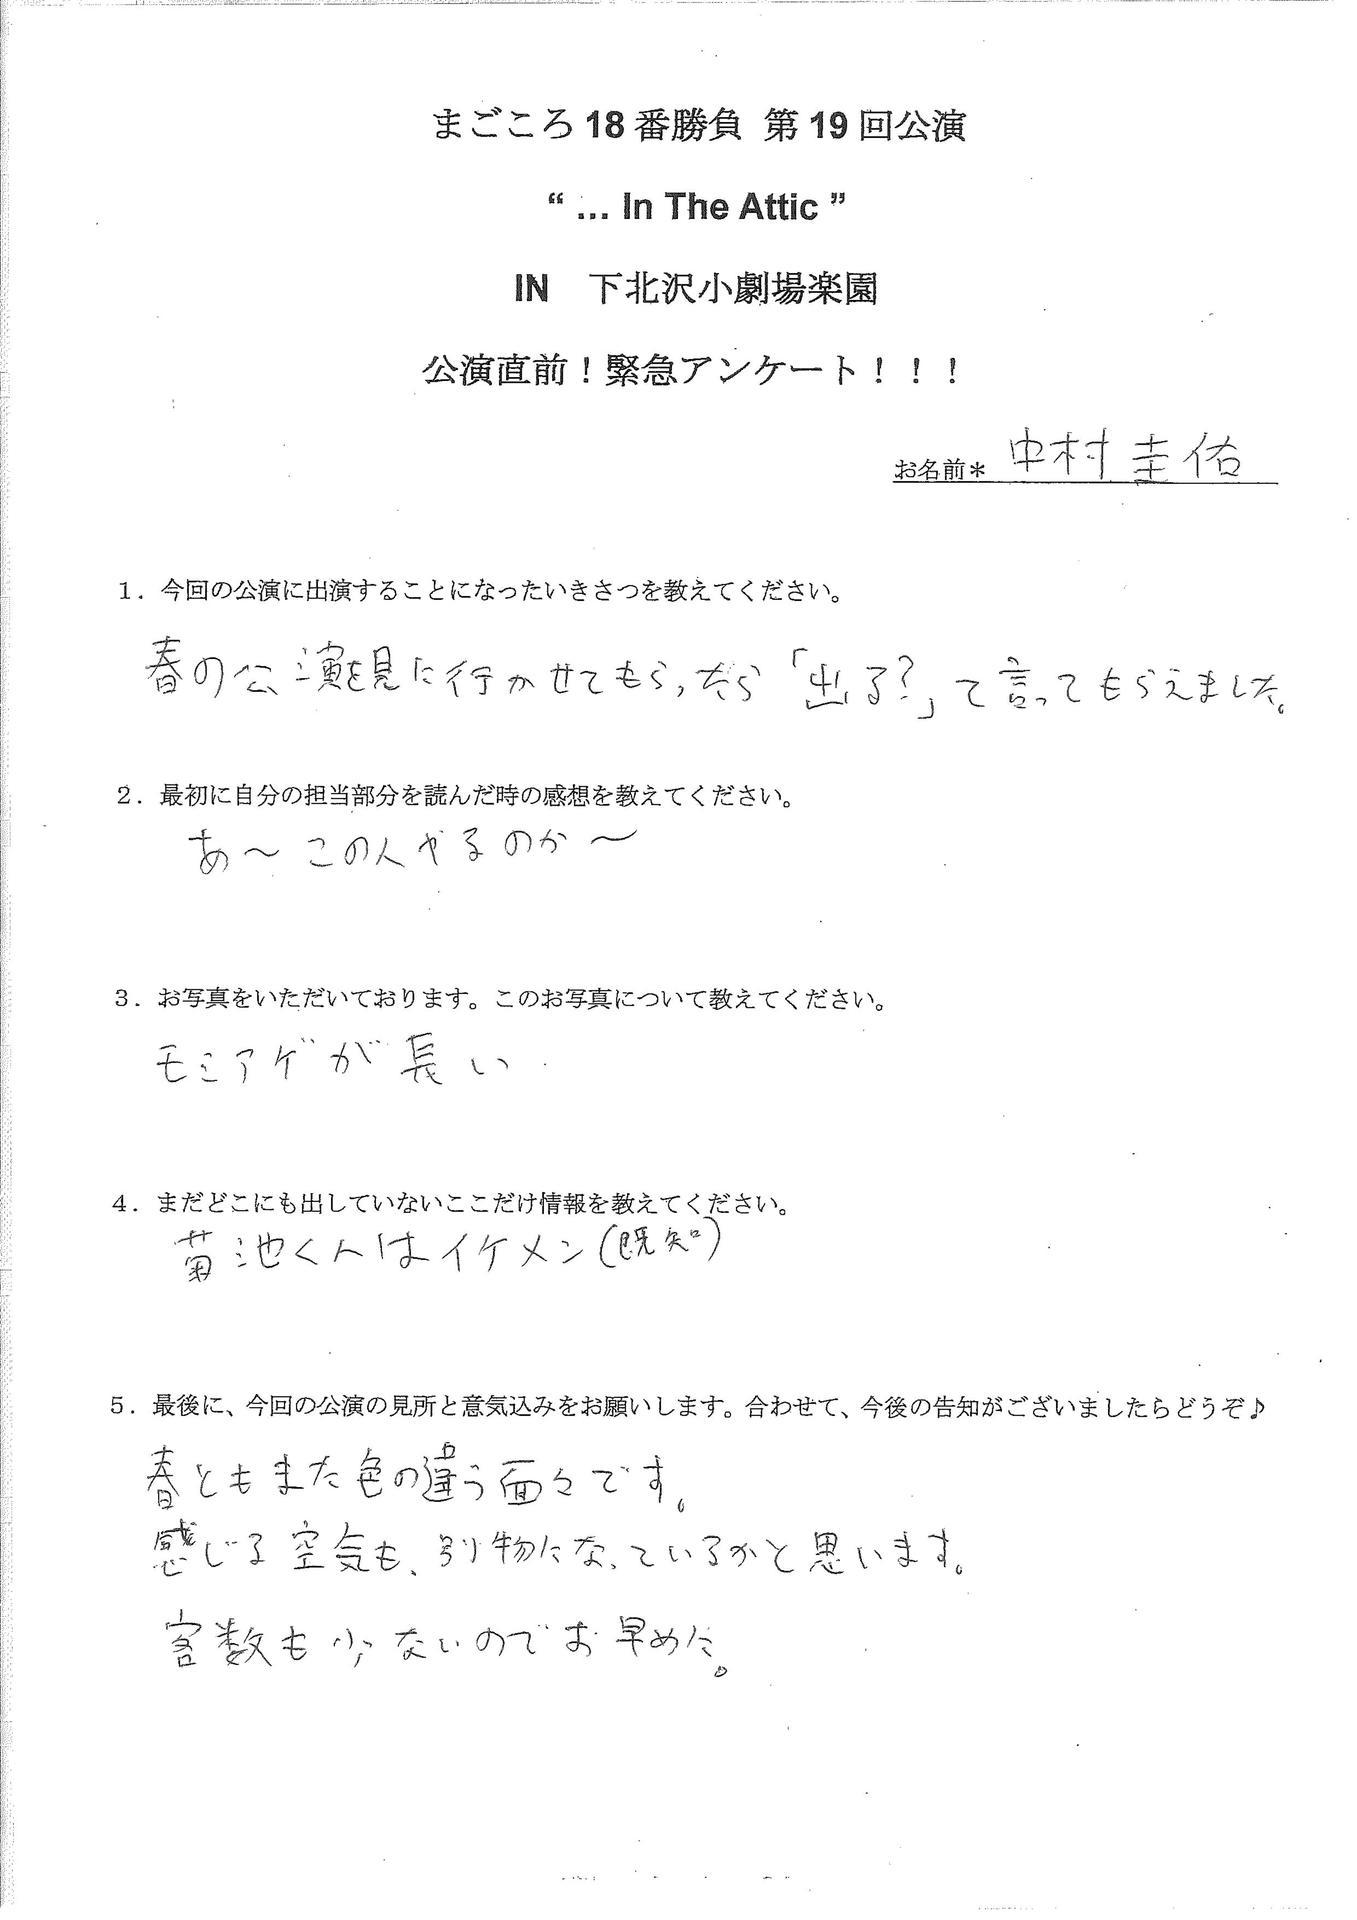 まごころ18番勝負 第19回公演
“ ... In The Attic ”
IN 下北沢小劇場楽園
公演直前！緊急アンケート！！！
お名前＊ 中村圭佑
１．今回の公演に出演することになったいきさつを教えてください。
春の公演を見に行かせてもらったら「出る？」って言ってもらえました。
２．最初に自分の担当部分を読んだ時の感想を教えてください。
あ～この人やるのか～
３．お写真をいただいております。このお写真について教えてください。
モミアゲが長い
４．まだどこにも出していないここだけ情報を教えてください。
菊池くんはイケメン(既知)
５．最後に、今回の公演の見所と意気込みをお願いします。合わせて、今後の告知がございましたらどうぞ♪
春ともまた色の違う面々です。
感じる空気も、別物になっているかと思います。
客数も少ないのでお早めに。